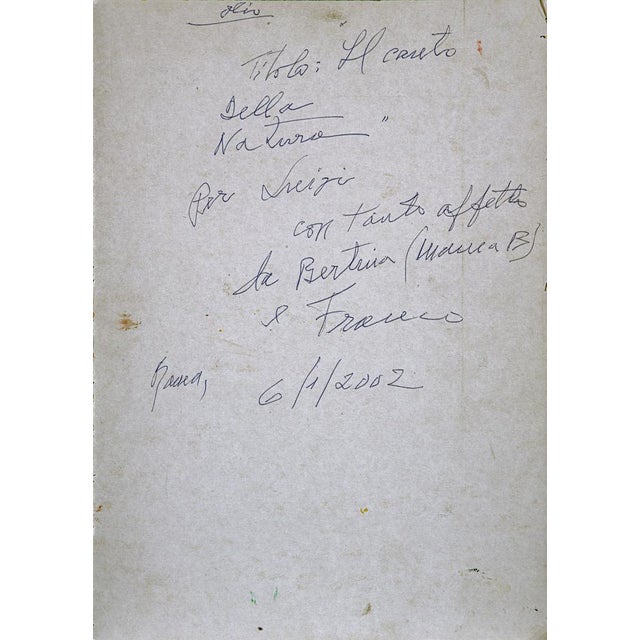 olio
Titolo: "Il careto
Della
Natura"
Per Luigi
con tanto affetto
da Bertina (Mamma B)
e Franco
Roma,
6/1/2002